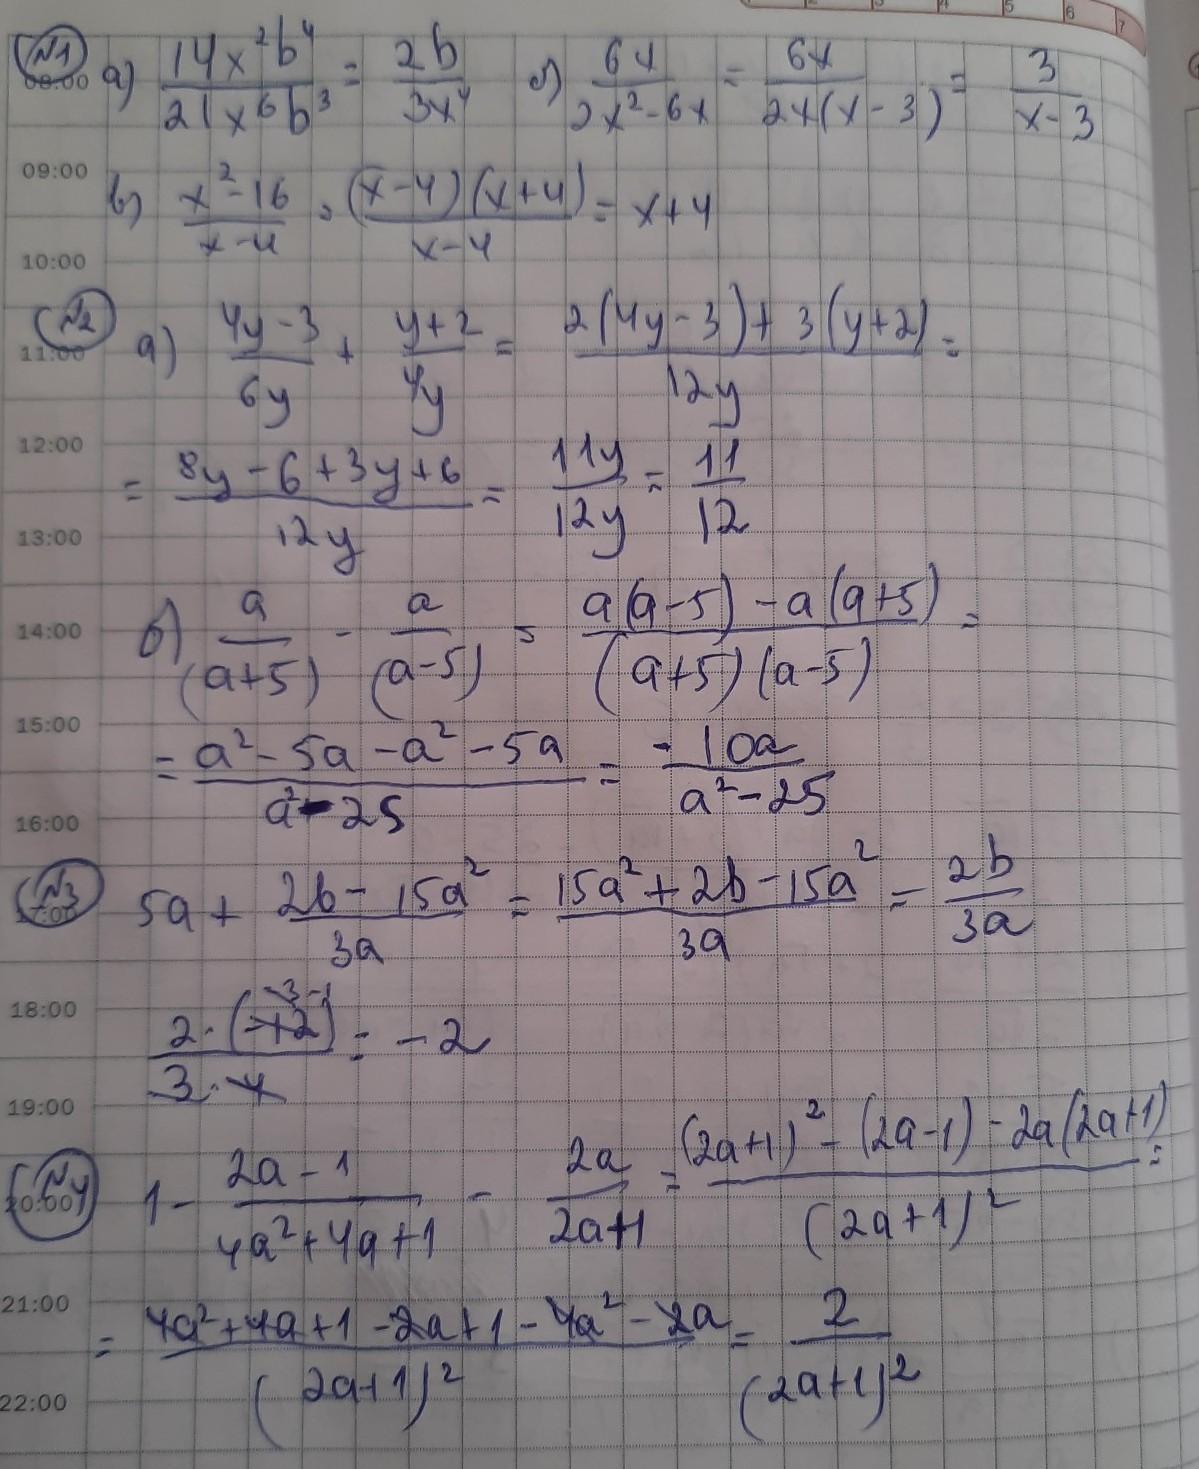 1 2 3 4 5 6 7
№1
08:00 а) 14x²b⁴/21x⁶b³ = 2b/3x⁴ б) 6x/2x²-6x = 6x/2x(x-3) = 3/x-3
09:00 в) x²-16/x-4 = (x-4)(x+4)/x-4 = x+4
10:00
№2
11:00 а) 4y-3/6y + y+2/4y = 2(4y-3)+3(y+2)/12y =
12:00 = 8y-6+3y+6/12y = 11y/12y = 11/12
13:00
14:00 б) a/(a+5) - a/(a-5) = a(a-5)-a(a+5)/(a+5)(a-5) =
15:00 = a²-5a-a²-5a/a²-25 = -10a/a²-25
16:00
№3
17:00 5a + 2b-15a²/3a = 15a²+2b-15a²/3a = 2b/3a
-3 -1
18:00 2·(-12)/3·4 = -2
19:00
№4
20:00 1 - 2a-1/4a²+4a+1 - 2a/2a+1 = (2a+1)²-(2a-1)-2a(2a+1)/(2a+1)² =
21:00 = 4a²+4a+1-2a+1-4a²-2a/(2a+1)² = 2/(2a+1)²
22:00